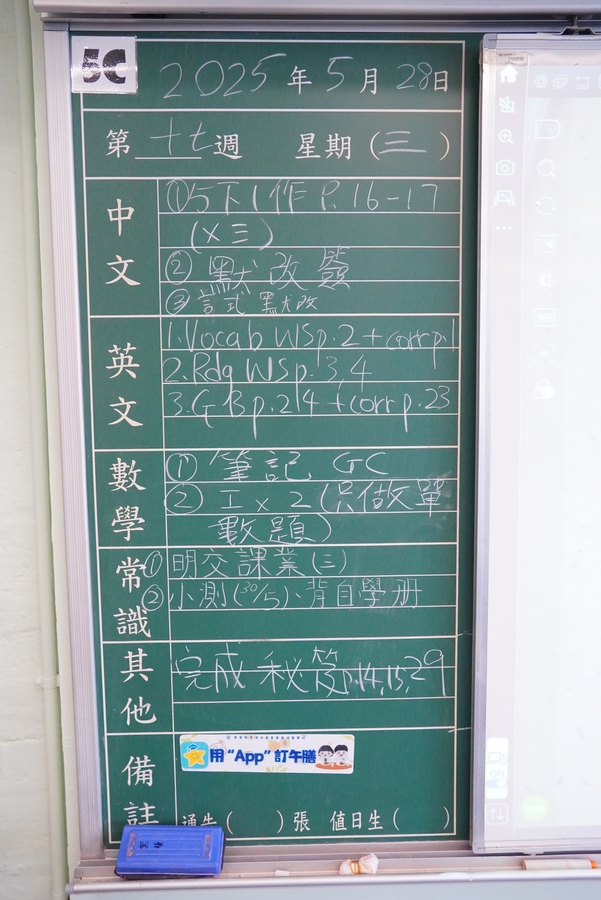 5C
2025年5月28日
第十七週 星期(三)
中文
①5下1作 P.16-17
(x三)
②默改簽
③言式默改
英文
1.Vocab WSp.2+corrp.1
2.Rdg WSp.3,4
3.GBp.214+corrp.23
數學
①筆記 GC
②工x2(只做單
數題)
常識
①明交課業(三)
②小測(30/5)、背自學册
其他
完成 秘笈p.14,15,29
備註
用“App”訂午膳
通告( )張 值日生( )